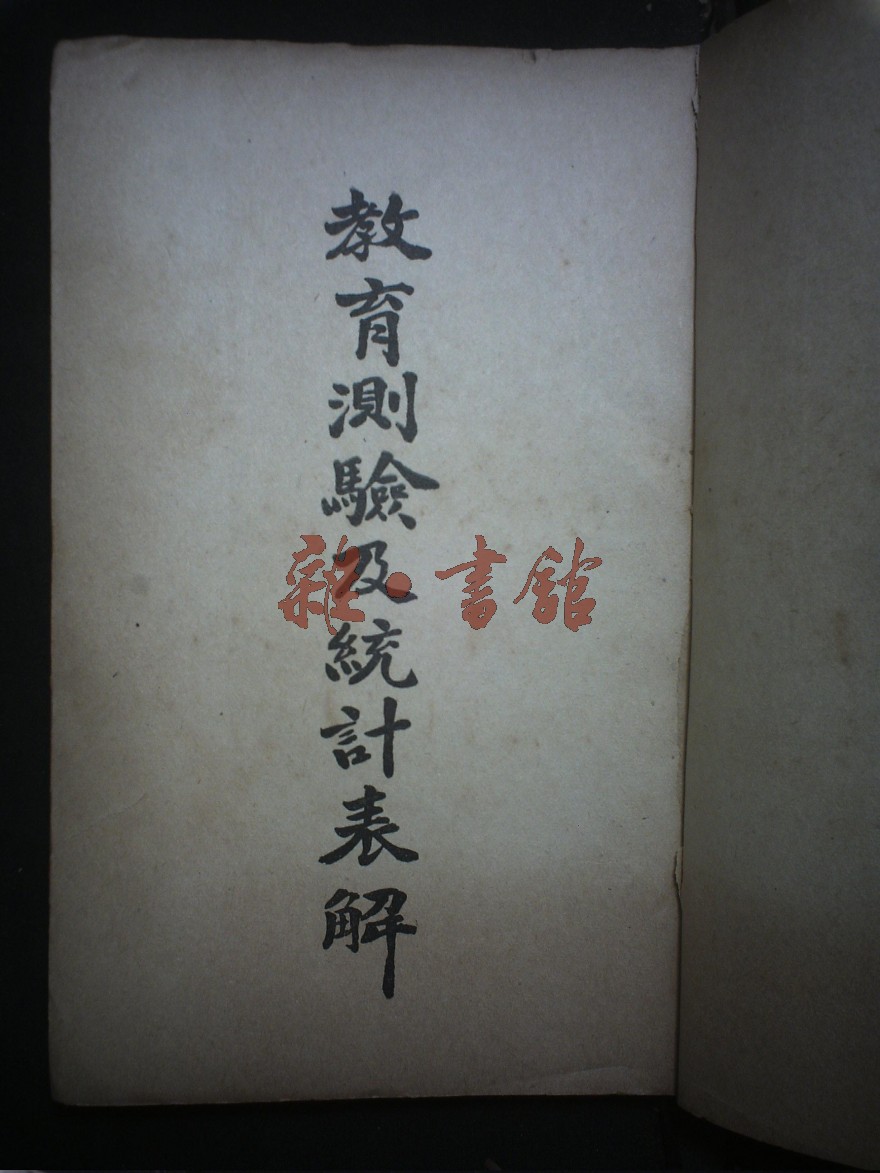 教育測驗及統計表解
雜·書館